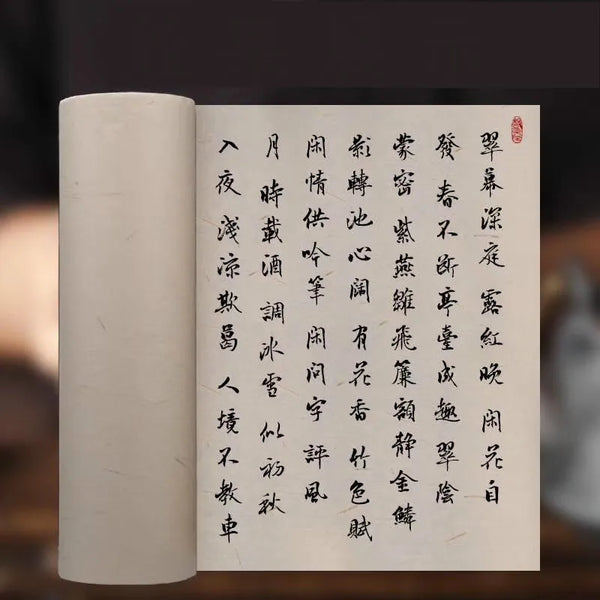 翠幕深庭 露紅晚 閑花自
發 春不斷亭臺成趣 翠陰
蒙密 紫燕雛飛簾額静 金鱗
影轉池心闊 有花香 竹色賦
閑情 供吟筆 閑問字 評風
月 時載酒 調冰雪 似初秋
入夜 淺凉欺葛 人境不教車